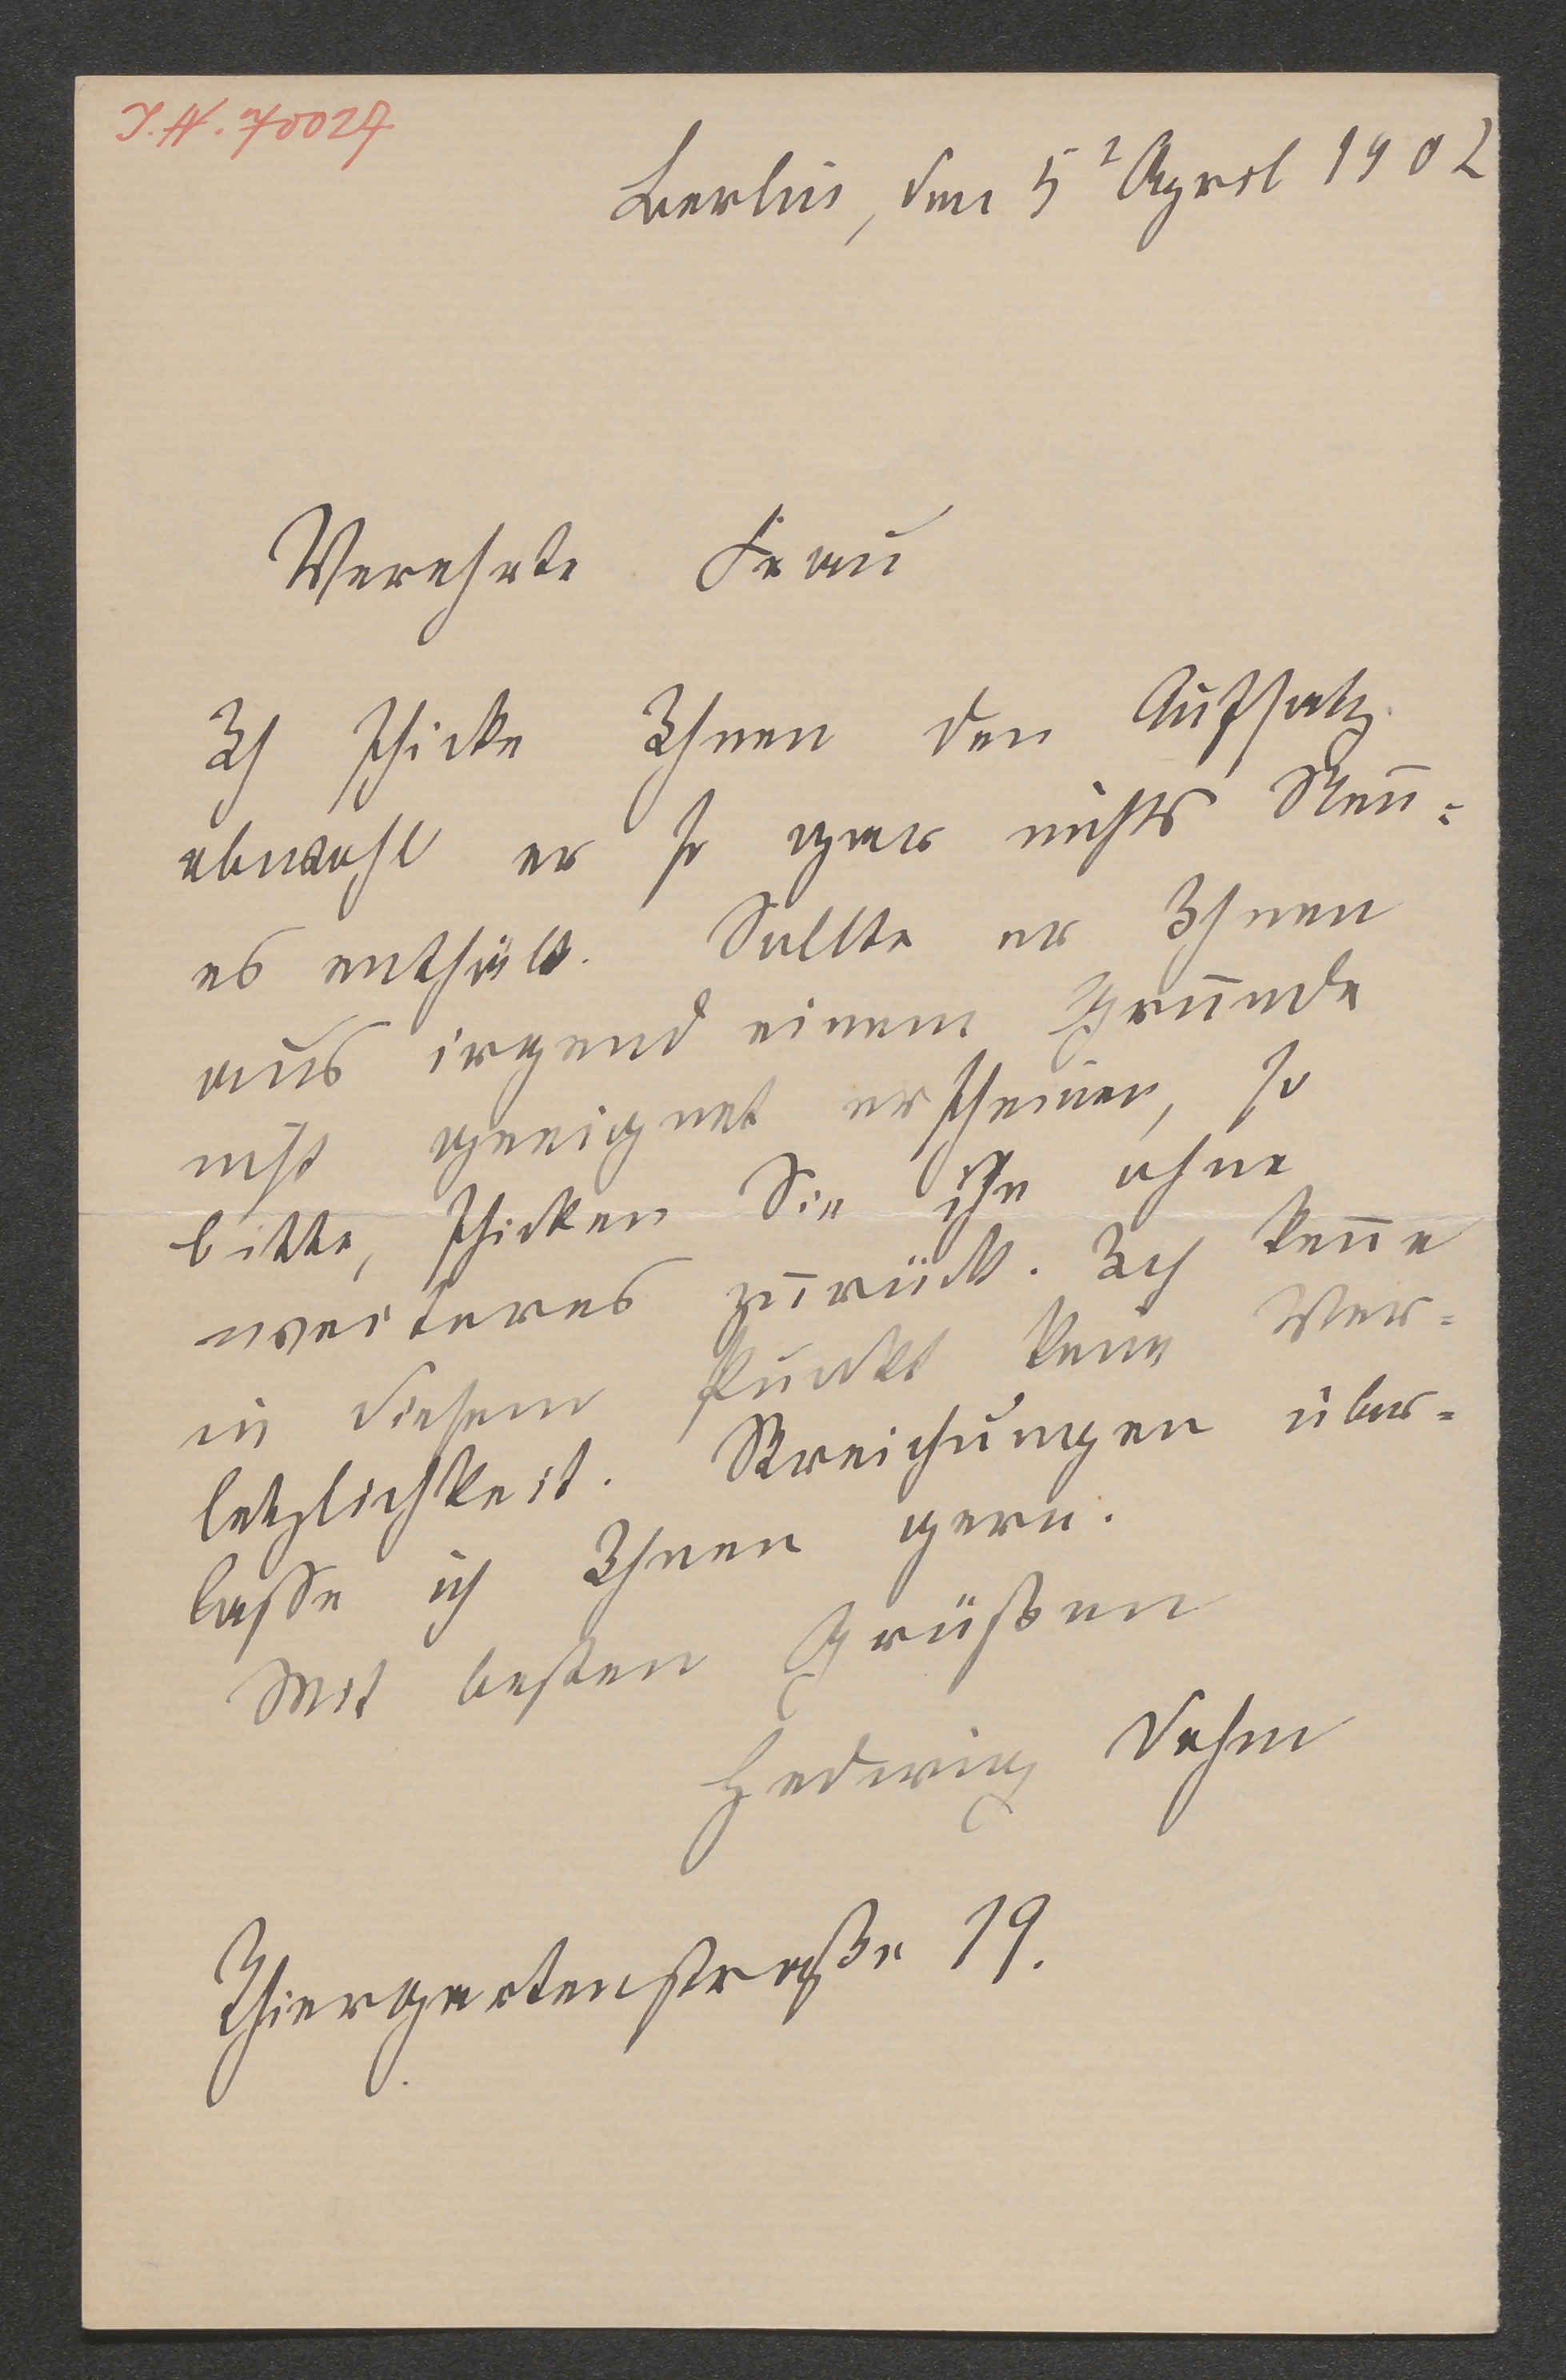 I.N. 70027
Berlin, den 5 April 1902
Verehrte Frau
Ich schicke Ihnen den Aufsatz
obwohl er so gar nichts Neu-
es enthält. Sollte er Ihnen
aus irgend einem Grunde
nicht geeignet erscheinen, so
bitte, schicken Sie ihn ohne
weiteres zurück. Ich kenne
in diesem Punkt keine Ver-
letzlichkeit. Streichungen über-
lasse ich Ihnen gern.
Mit besten Grüßen
Hedwig Dohm
Thiergartenstraße 19.